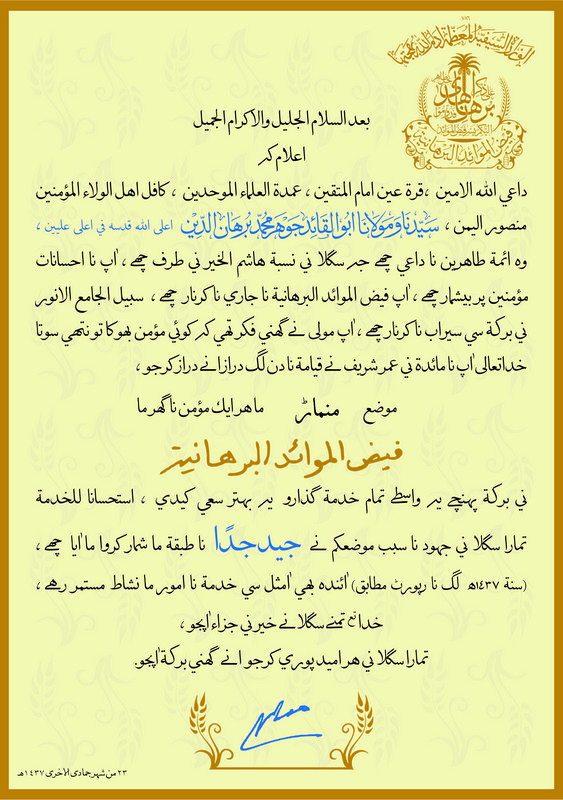 ٧٨٦
بعد السلام الجليل والاكرام الجميل
اعلام كه
داعي الله الامين ، قرة عين امام المتقين ، عمدة العلماء الموحدين ، كافل اهل الولاء المؤمنين
منصور اليمن ، سيدنا ومولانا ابو القائد جوهر محمد برهان الدين اعلى الله قدسه في اعلى عليين ،
وه ائمة طاهرين نا داعي چھے جه سگلا ني نسبة هاشم الخير ني طرف چھے ، اٰپ نا احسانات
مؤمنين پر بيشمار چھے ، اٰپ فيض الموائد البرهانية نا جاري نا كرنار چھے ، سبيل الجامع الانور
ني بركة سي سيراب نا كرنار چھے ، اٰپ مولى نے گھني فكر تھي كه كوئي مؤمن بھوكا تو نتھي سوتا
خدا تعالى اٰپ نا مائدة ني عمر شريف نے قيامة نا دن لگ دراز انے دراز كرجو ،
موضع منماڑ ما هر ايك مؤمن نا گھر ما
فيض الموائد البرهانية
ني بركة پهنچے يه واسطے تمام خدمة گذارو يه بهتر سعي كيدي ، استحسانا للخدمة
تمارا سگلا ني جهود نا سبب موضعكم نے جيد جدًا نا طبقة ما شمار كروا ما اٰيا چھے ،
(سنة ١٤٣٧هـ لگ نا رپورٹ مطابق) اٰئنده بھي اٰمثل سي خدمة نا امور ما نشاط مستمر رهے ،
خدا تع تمنے سگلا نے خير ني جزاء اٰپجو ،
تمارا سگلا ني هر اميد پوري كرجو انے گھني بركة اٰپجو.
٢٣ من شهر جمادى الاخرى ١٤٣٧هـ